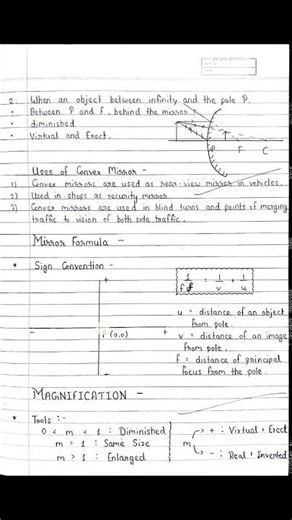 2. When an object between infinity and the pole P.
• Between P and F, behind the mirror.
• diminished
• Virtual and Erect.
P F C
Uses of Convex Mirror -
1) Convex mirrors are used as rear-view mirror in vehicles.
2) Used in shops as security mirror.
3) Convex mirrors are used in blind turns and points of merging
traffic to vision of both side traffic.
Mirror Formula -
* Sign Convention -
1/f = 1/v + 1/u
+
u = distance of an object
from pole.
- P(0,0) +
v = distance of an image
from pole.
f = distance of principal
focus from the pole.
-
MAGNIFICATION -
* Tools :-
0 < m < 1 : Diminished
m = 1 : Same Size
m > 1 : Enlarged
m
+ : Virtual & Erect
- : Real & Inverted